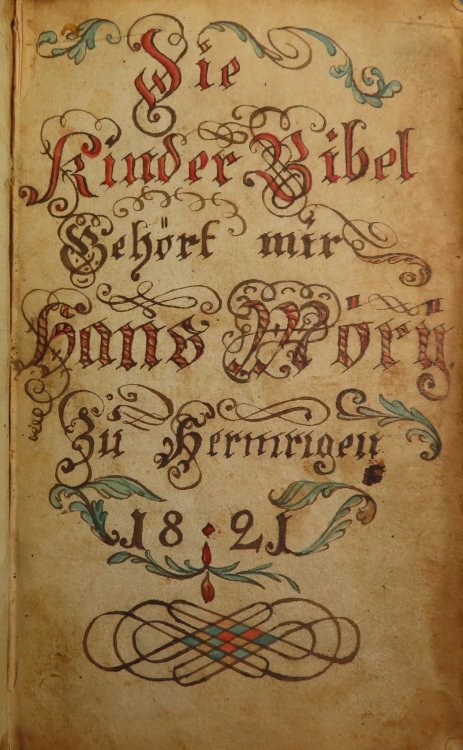 Die
Kinder Bibel
Gehört mir
Hans Mörÿ
Zu Hermrigen
18.21